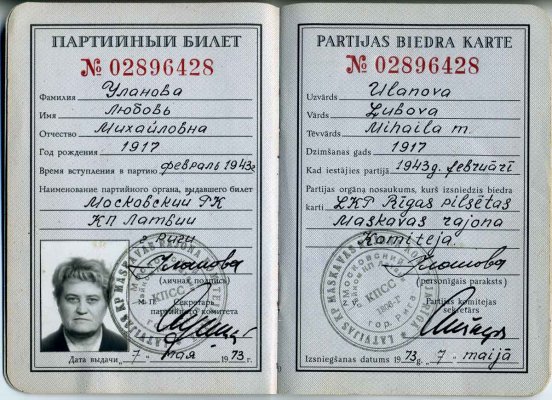 ПАРТИЙНЫЙ БИЛЕТ
№ 02896428
Фамилия Уланова
Имя Любовь
Отчество Михайловна
Год рождения 1917
Время вступления в партию февраль 1943г
Наименование партийного органа, выдавшего билет
Московский РК
КП Латвии
г. Риги
Уланова
(личная подпись)
М. П. Секретарь
партийного комитета
Дата выдачи „7“ мая 1973 г.
PARTIJAS BIEDRA KARTE
№ 02896428
Uzvārds Ulanova
Vārds Ļubova
Tēvvārds Mihaila m.
Dzimšanas gads 1917
Kad iestājies partijā 1943g. februārī
Partijas orgāna nosaukums, kurš izsniedzis biedra
karti LKP Rīgas pilsētas
Maskavas rajona
Komiteja.
Уланова
(personīgais paraksts)
Partijas komitejas
sekretārs
Izsniegšanas datums 1973. g. „7“ maijā